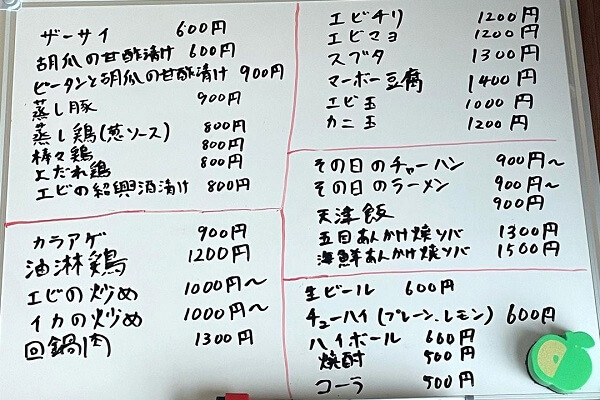 ザーサイ 600円
胡瓜の甘酢漬け 600円
ピータンと胡瓜の甘酢漬け 900円
蒸し豚 900円
蒸し鶏(葱ソース) 800円
棒々鶏 800円
よだれ鶏 800円
エビの紹興酒漬け 800円
カラアゲ 900円
油淋鶏 1200円
エビの炒め 1000円〜
イカの炒め 1000円〜
回鍋肉 1300円
エビチリ 1200円
エビマヨ 1200円
スブタ 1300円
マーボー豆腐 1400円
エビ玉 1000円
カニ玉 1200円
その日のチャーハン 900円〜
その日のラーメン 900円〜
天津飯 900円
五目あんかけ焼ソバ 1300円
海鮮あんかけ焼ソバ 1500円
生ビール 600円
チューハイ(プレーン、レモン) 600円
ハイボール 600円
焼酎 500円
コーラ 500円